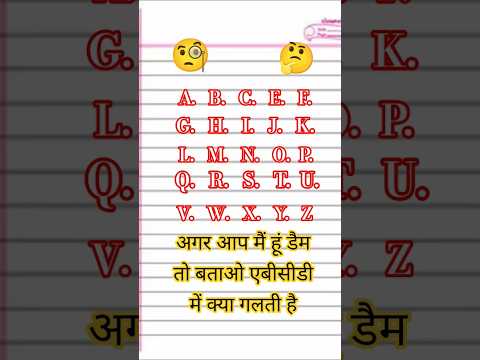 A. B. C. E. F.
G. H. I. J. K.
L. M. N. O. P.
Q. R. S. T. U.
V. W. X. Y. Z
अगर आप मैं हूं डैम
तो बताओ एबीसीडी
में क्या गलती है